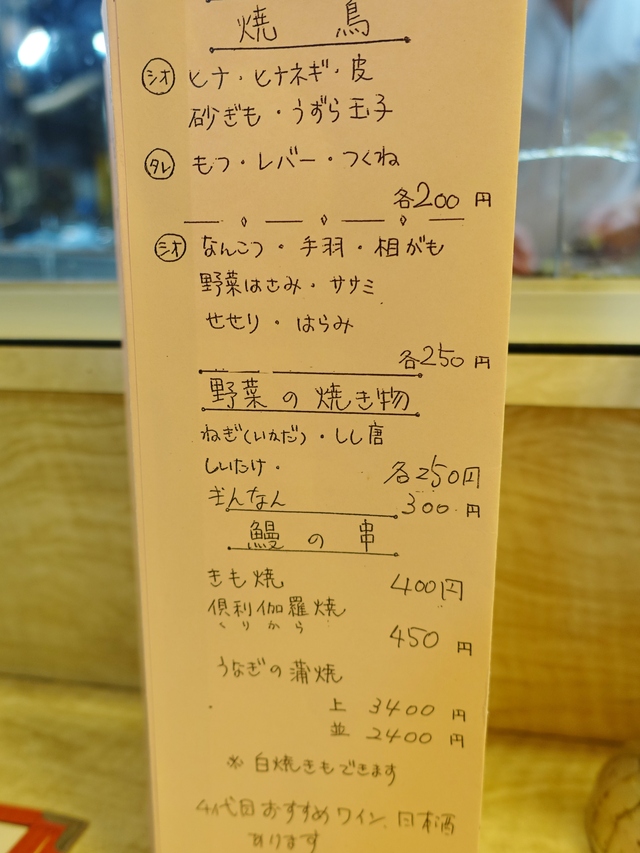 焼鳥
シオ ヒナ・ヒナネギ・皮
砂ぎも・うずら玉子
タレ もつ・レバー・つくね
各200円
シオ なんこつ・手羽・相がも
野菜はさみ・ササミ
せせり・はらみ
各250円
野菜の焼き物
ねぎ(いかだ)・しし唐
しいたけ・ 各250円
ぎんなん 300円
鰻の串
きも焼 400円
倶利伽羅焼
くりから
450円
うなぎの蒲焼
上 3400円
並 2400円
※白焼きもできます
4代目おすすめワイン、日本酒
あります